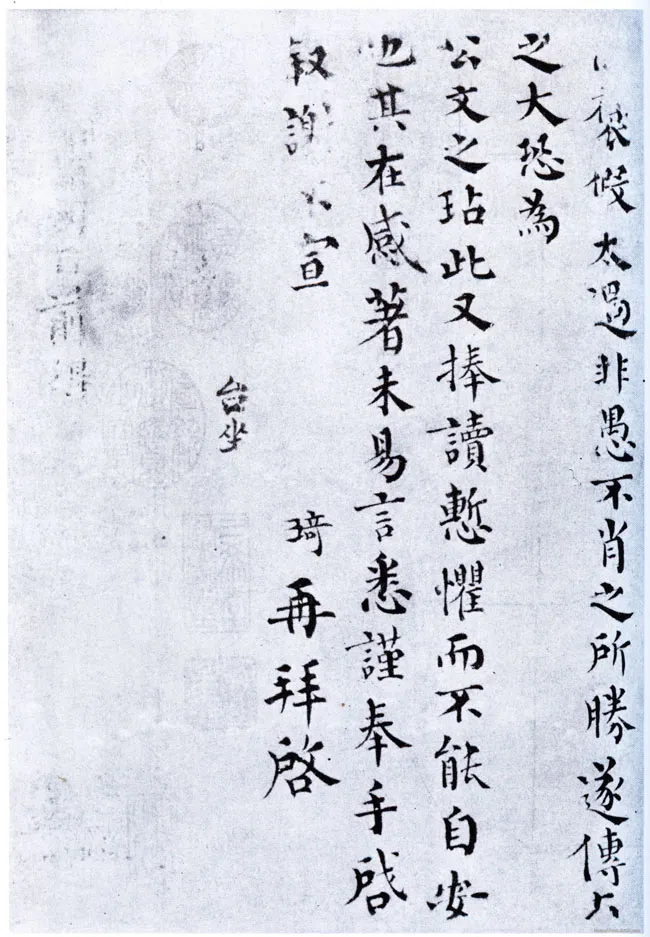 褒假太過非愚不肖之所勝遂傳
之大恐為
公文之玷此又捧讀慙懼而不能自安
也其在感著未易言悉謹奉手啓
叙謝不宣
琦再拜啓
台坐
前